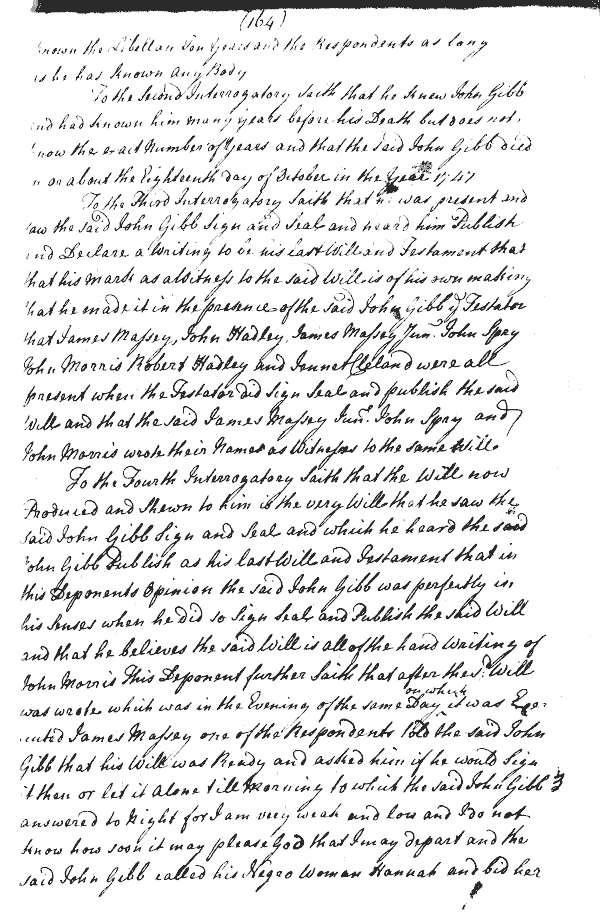 (164)
known the Libellan Ten Years and the Respondents as long
as he has known any Body
To the Second Interrogatory Saith that he Knew John Gibb
and had known him many years before his Death but does not
know the exact Number of Years and that the said John Gibb died
in or about the Eighteenth day of October in the Year 1747
To the Third Interrogatory Saith that he was present and
saw the said John Gibb Sign and Seal and heard him Publish
and Declare a Writing to be his last Will and Testament that
that his mark as a Witness to the said Will is of his own making
that he made it in the presence of the said John Gibb ye Testator
that James Massey, John Hadley, James Massey Junr. John Spry
John Morris Robert Hadley and Jennet Cleland were all
present when the Testator did Sign Seal and publish the said
Will and that the said James Massey Junr. John Spry and
John Morris wrote their Names as Witnesses to the same Will.
To the Fourth Interrogatory Saith that the Will now
Produced and Shewn to him is the very Will that he saw the
said John Gibb Sign and Seal and which he heard the said
John Gibb Publish as his last Will and Testament that in
this Deponents Opinion the said John Gibb was perfectly in
his Senses when he did so Sign Seal and Publish the said Will
and that he believes the said Will is all of the hand Writing of
John Morris This Deponent further Saith that after the sd. Will
was wrote which was in the Evening of the same Day on which it was Exe-
cuted James Massey one of the Respondents Told the said John
Gibb that his Will was Ready and asked him if he would Sign
it then or let it alone till Morning to which the said John Gibb
answered to Night for I am very weak and low and I do not
know how soon it may please God that I may depart and the
said John Gibb called his Negro Woman Hannah and bid her